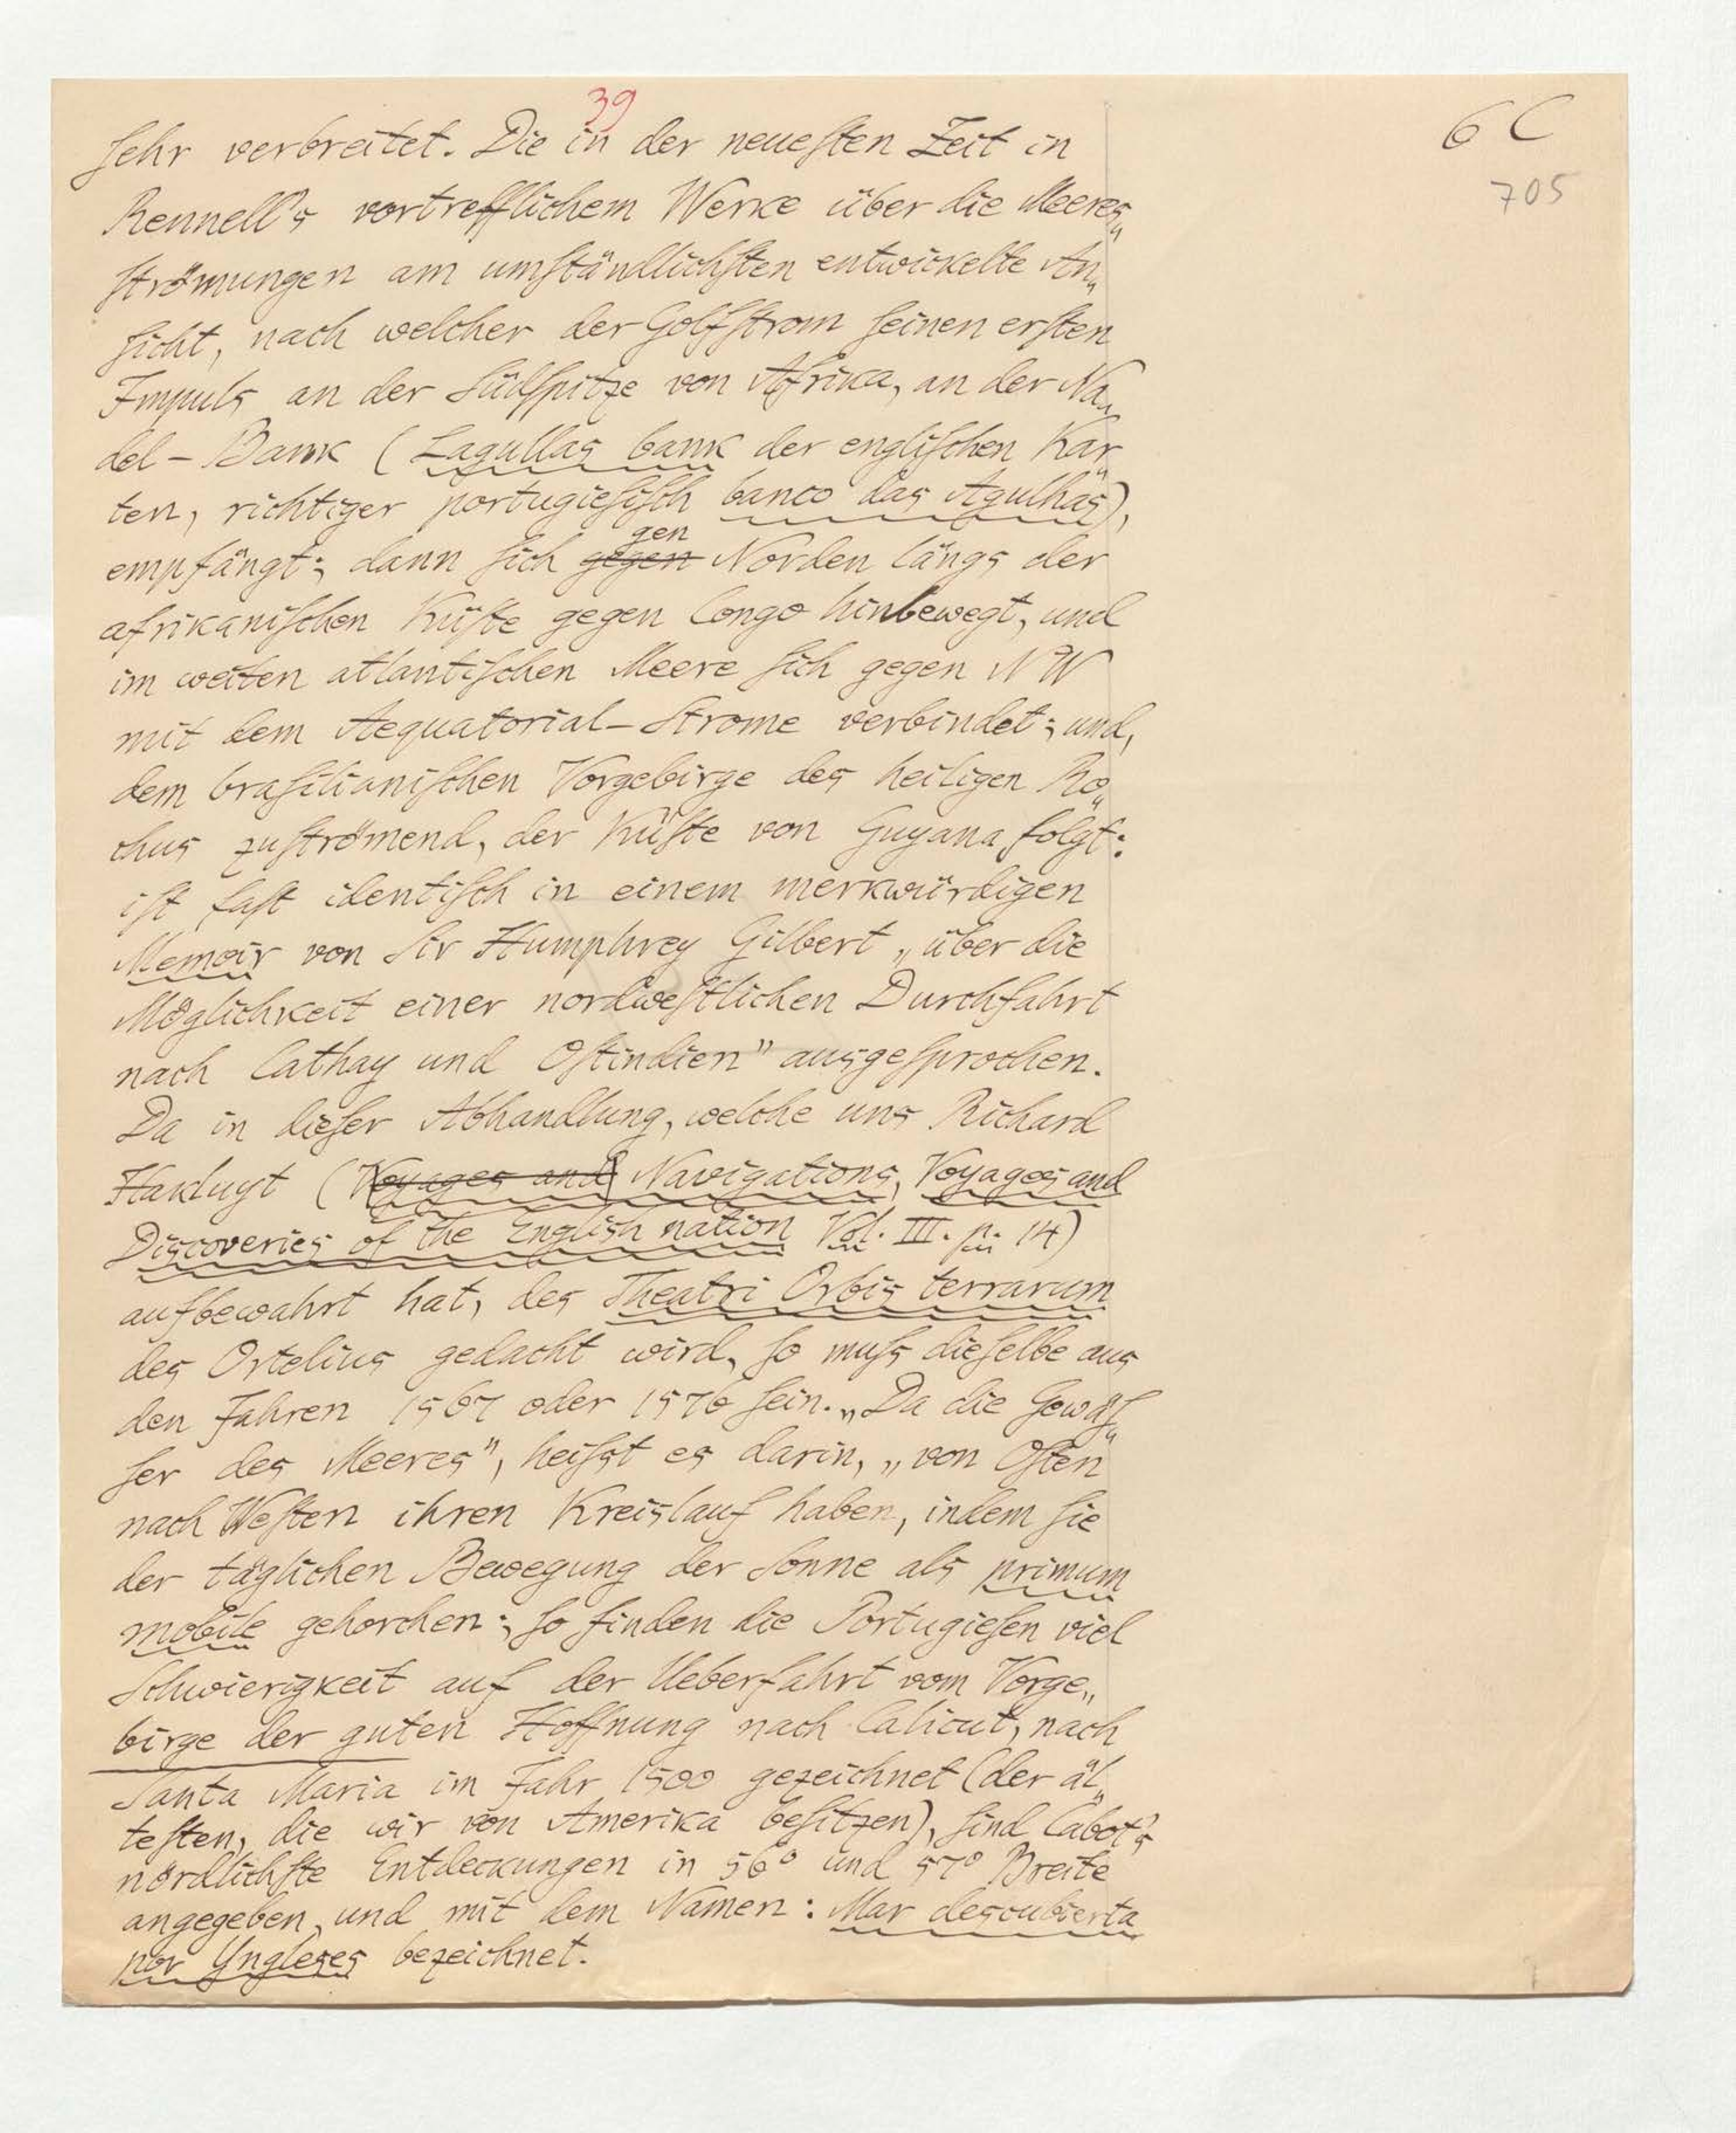 39
6 C
705
ſehr verbreitet. Die in der neueſten Zeit in
Rennell's vortrefflichem Werke über die Meeres„
ſtrömungen am umſtändlichſten entwickelte An„
ſicht, nach welcher der Golfſtrom ſeinen erſten
Impuls an der Südſpitze von Afrika, an der Na„
del-Bank (Lagullas bank der engliſchen Kar„
ten, richtiger portugieſiſch banco das Agulhas),
empfängt; dann ſich gegen gen Norden längs der
afrikaniſchen Küſte gegen Congo hinbewegt, und
im weiten atlantiſchen Meere ſich gegen NW
mit dem Aequatorial-Strome verbindet; und,
dem braſilianiſchen Vorgebirge des heiligen Ro„
chus zuſtrömend, der Küſte von Guyana folgt:
iſt faſt identiſch in einem merkwürdigen
Memoir von Sir Humphrey Gilbert „über die
Möglichkeit einer nordweſtlichen Durchfahrt
nach Cathay und Oſtindien" ausgeſprochen.
Da in dieſer Abhandlung, welche uns Richard
Hakluyt (Voyages and Navigations, Voyages and
Discoveries of the English nation Vol. III. p. 14)
aufbewahrt hat, des Theatri Orbis terrarum
des Ortelius gedacht wird, ſo muſs dieſelbe aus
den Jahren 1567 oder 1576 ſein. „Da die Gewäſ„
ſer des Meeres", heiſst es darin, „von Oſten
nach Weſten ihren Kreislauf haben, indem ſie
der täglichen Bewegung der Sonne als primum
mobile gehorchen; ſo finden die Portugieſen viel
Schwierigkeit auf der Ueberfahrt vom Vorge„
birge der guten Hoffnung nach Calicut, nach
Santa Maria im Jahr 1500 gezeichnet (der äl„
teſten, die wir von Amerika beſitzen), ſind Cabot's
nördlichſte Entdeckungen in 56° und 57° Breite
angegeben, und mit dem Namen: Mar descubierta
por Yngleses bezeichnet.